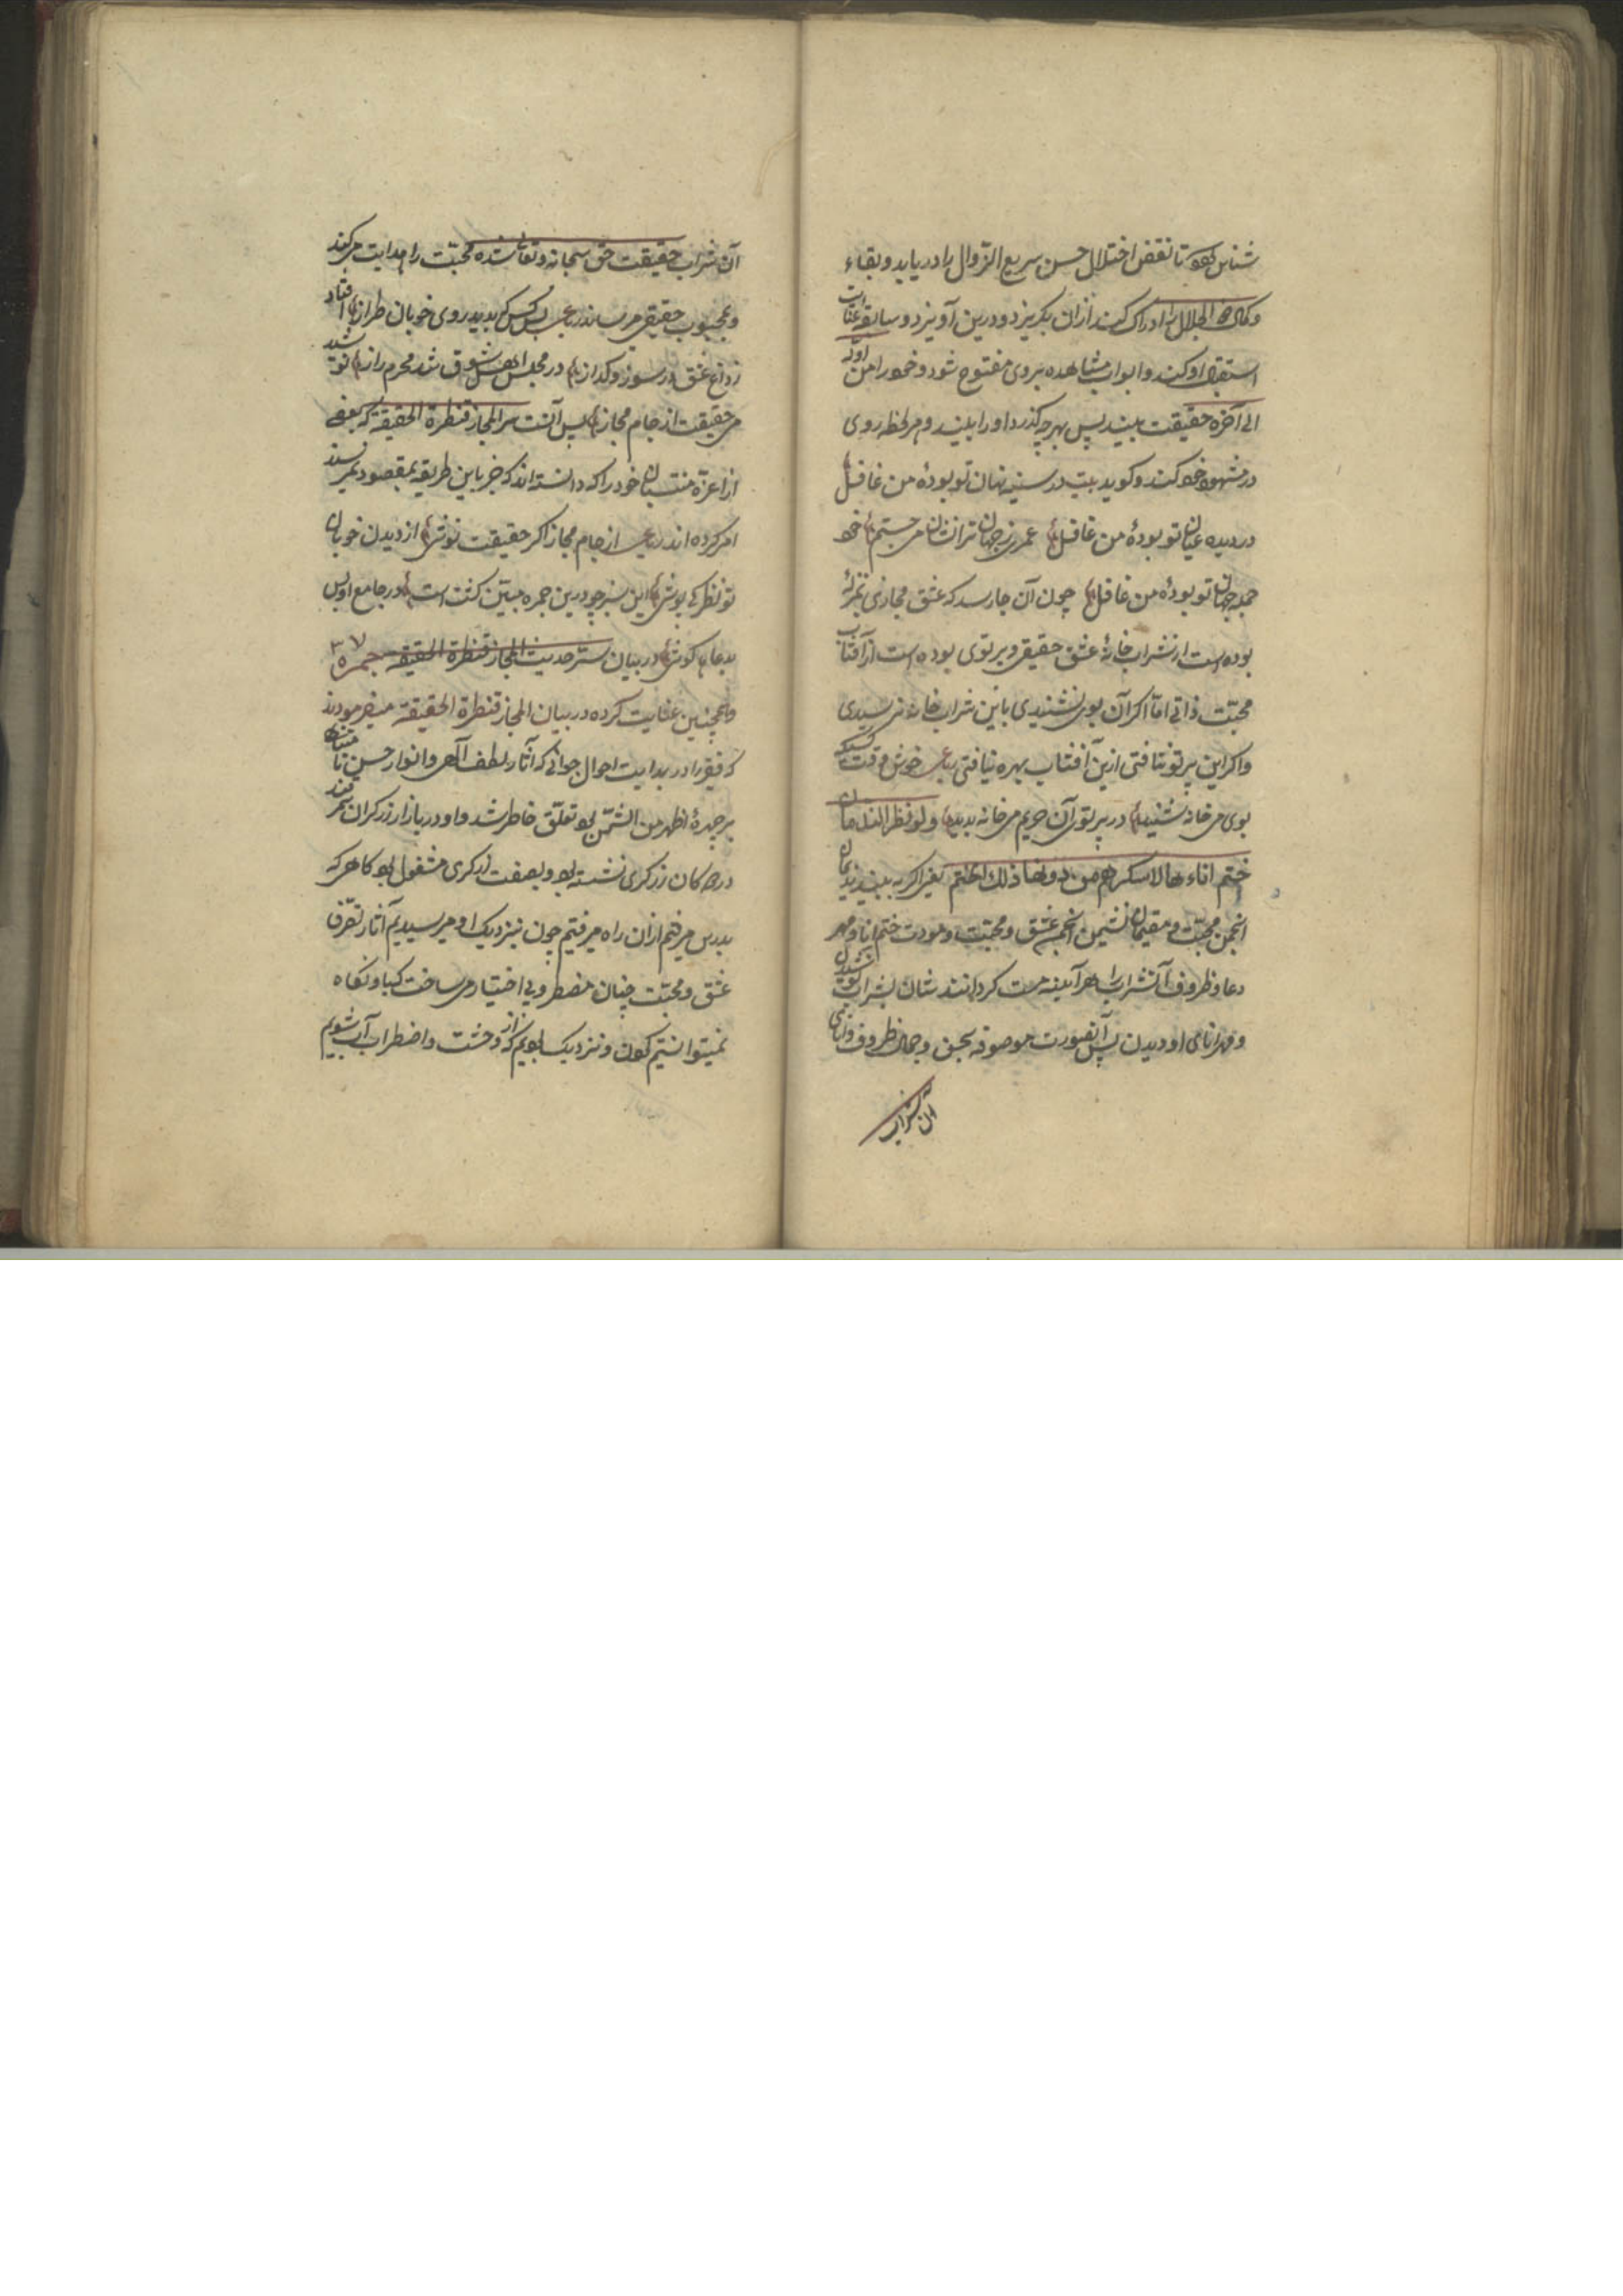 شناس بود تا نقص اختلال حسن سریع الزوال را دریابد و بقاء
و کمال ذو الجلال را ادراک کند ازان بگریزد و درین آویزد و سابقه عنایت
استقبال او کند و ابواب مشاهده بروی مفتوح شود و خود را من اوله
الی آخره حقیقت بیند پس بهر چه گذرد او را بیند و هر لحظه روی
در مشهود خود کند و گوید بیت در سینه نهان تو بودهٔ من غافل
در دیده عیان تو بودهٔ من غافل عمری ز جهان ترا نشان می جستم خود
جمله جهان تو بودهٔ من غافل چون آن جا رسد که عشق مجازی
بوده است از شراب خانهٔ عشق حقیقی و پرتوی بوده است از آفتاب
محبت ذاتی اما اگر آن بوی نشنیدی باین شراب خانه نرسیدی
و اگر این پرتو نتافتی ازین آفتاب بهره نیافتی رباعی خوش وقت کسیکه
بوی می خانه شنید در پرتو آن حریم می خانه بدید و لو نظر الندمان
ختم اناءها لاسکرهم من دونها ذلک الختم یعنی اگر به بینند ندیمان
انجمن محبت و مقیمان نشیمن انجمن عشق و محبت و مودت ختم انا و مهر
دعا و ظروف آن شراب را هر آینه مست گرداند شان بی شراب نوشیدن
و مهر انای او دیدن پس آن صورت موصوفه بحسن و جمال ظروف و انای
آن شراب
آن شراب حقیقت حق سبحانه و تعالی شده محبت را هدایت می کند
و بمحبوب حقیقی می رساند رباعی پس کس که بدید روی خوبان طراز افتاد
ز داغ عشق در سوز و گداز در مجلس اهل شوق شد محرم راز نوشید
می حقیقت از جام مجاز پس آنست سر المجاز قنطرة الحقیقه که بعضی
از اعزه منتسبان خود را که دانسته اند که جز باین طریقه بمقصود نمیرسند
امر کرده اند رباعی از جام مجاز اگر حقیقت نوشی از دیدن خوبان
تو نظر کی پوشی این سر چو درین جمره مبین گشت است در جامع اویس
بدعا کوشی در بیان ستر حدیث المجاز قنطرة الحقیقه جمره ۳۷
و همچنین عنایت کرده در بیان المجاز قنطرة الحقیقه میفرمودند
که فقیر را در بدایت احوال جوانی که آثار لطف الهی و انوار حسن نامتناهی
بر چهرهٔ اظهر من الشمس بود تعلق خاطر شد و او در بازار زرگران سمرقند
در دکان زرگری نشسته بود و بصفت زرگری مشغول بود گاهی که
بدرس میرفتم ازان راه میرفتیم چون نزدیک او میرسیدیم آثار تصرف
عشق و محبت چنان مضطر و بی اختیار می ساخت که باو نگاه
نمیتوانستیم کردن و نزدیک بودیم که از وحشت و اضطراب آب شویم